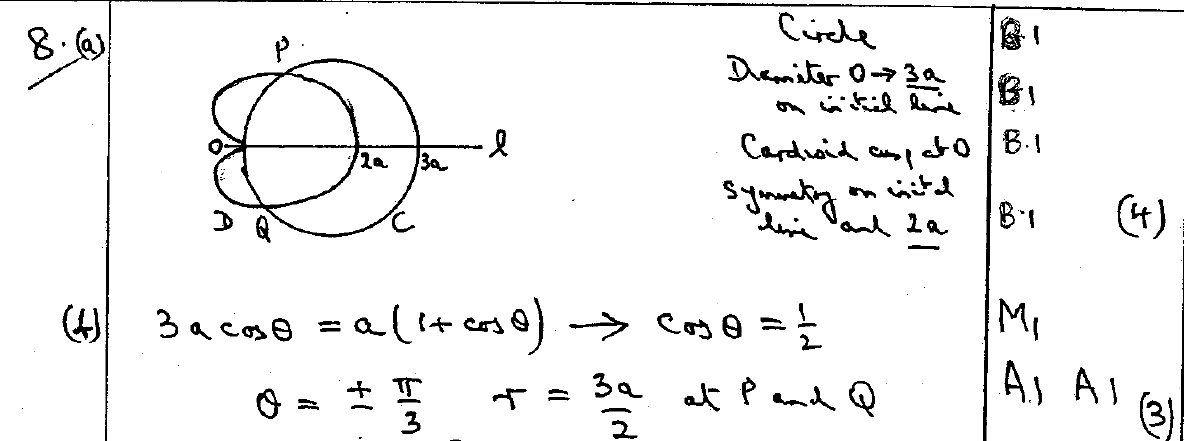 8.(a)
P
O
2a
3a
l
D
Q
C
Circle B1
Diameter O→3a B1
on initial line
Cardioid cusp at O B.1
Symmetry on initial
line and 2a B.1 (4)
(b) 3a cos θ = a(1 + cos θ) → cos θ = 1/2 M1
θ = ± π/3 r = 3a/2 at P and Q A1 A1 (3)